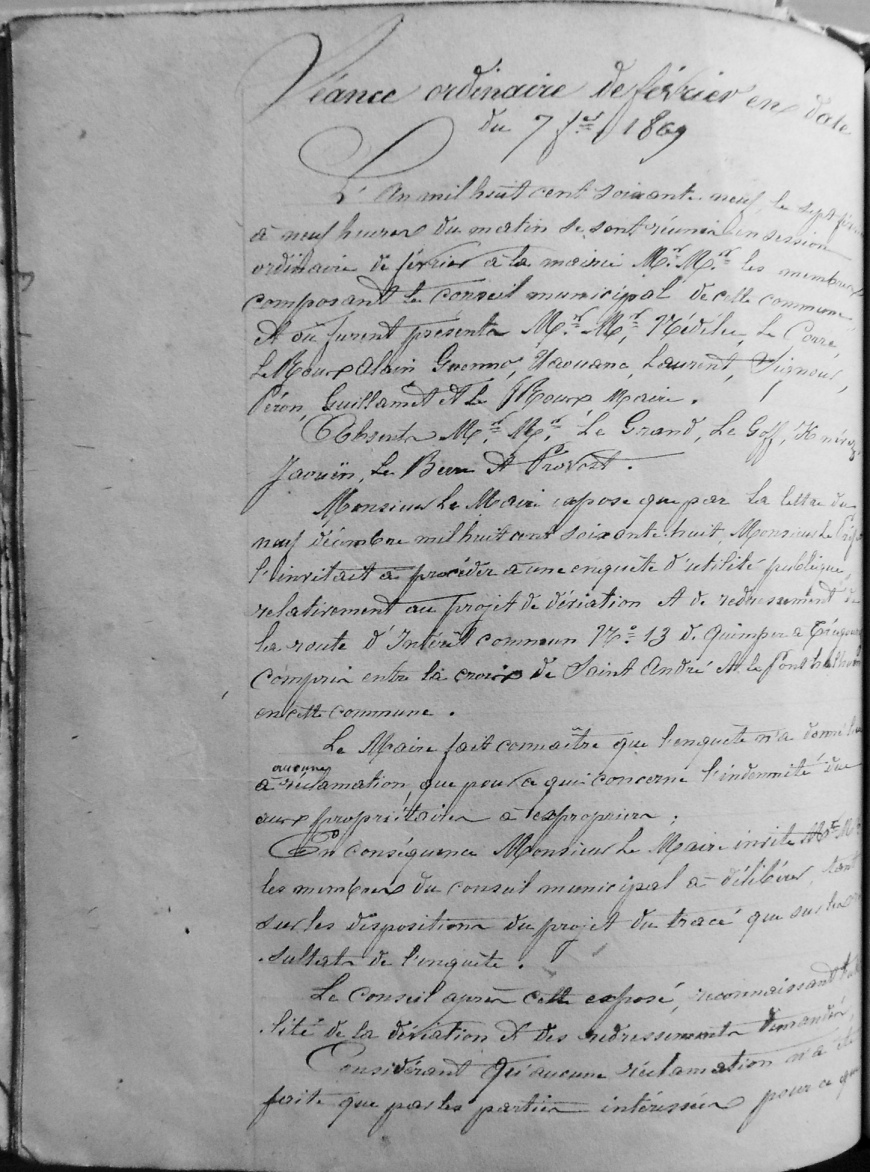 Séance ordinaire de février en date
du 7 fer 1869
L'An mil huit cent soixante neuf, le sept
à neuf heures du matin se sont réunis en session
ordinaire de février à la mairie Mrs Mrs les membres
composant le conseil municipal de cette commune,
Et où furent présents Mrs Mrs Nédélec, Le Corre,
Le Roux Alain Guenno, Yaouanc, Laurent, Vigouroux,
Péron, Guillamet et Le Roux, Maire.
Absents Mrs Mrs Le Grand, Le Goff,
Jaouën, Le Berre et Provost.
Monsieur Le Maire expose que par la lettre du
neuf décembre mil huit cent soixante huit, Monsieur Le
l'invitait à procéder à une enquête d'utilité publique,
relativement au projet de déviation et de redressement de
la route d'Intérêt commun No 13 de Quimper à
compris entre la croix de Saint André et le
en cette commune.
Le Maire fait connaître que l'enquête n'a donné lieu
à aucune réclamation, que pour ce qui concerne l'indemnité due
aux propriétaires à exproprier;
En conséquence Monsieur Le Maire invite Mrs
les membres du conseil municipal à délibérer, tant
sur les dispositions du projet du tracé que sur les
sultats de l'enquête.
Le Conseil après cette exposé, reconnaissant
lité de la déviation et des redressements demandés,
Considérant qu'aucune réclamation n'a été
faite que par les parties intéressées pour ce qui